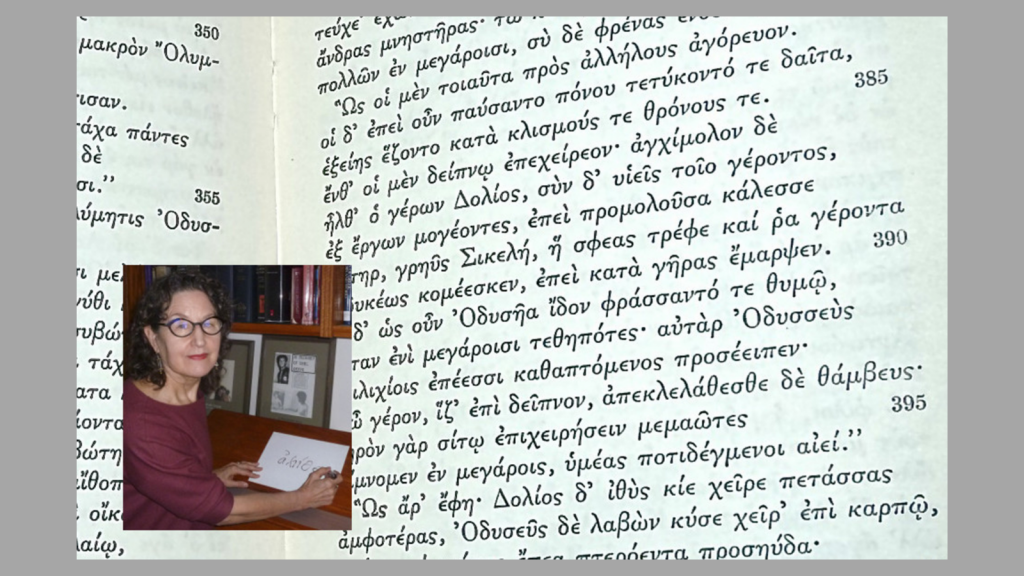 350
μακρὸν Ὄλυμ-
πάντες
δὲ
355
Ὀδυσ-
τάχ
ἄνδρας μνηστῆρας·
πολλῶν ἐν μεγάροισι, σὺ δὲ φρένας
Ὣς οἱ μὲν τοιαῦτα πρὸς ἀλλήλους ἀγόρευον.
οἱ δ’ ἐπεὶ οὖν παύσαντο πόνου τετύκοντό τε δαῖτα,
ἑξείης ἕζοντο κατὰ κλισμούς τε θρόνους τε. 385
ἔνθ’ οἱ μὲν δείπνῳ ἐπεχείρεον· ἀγχίμολον δὲ
ἦλθ’ ὁ γέρων Δολίος, σὺν δ’ υἱεῖς τοῖο γέροντος,
ἐξ ἔργων μογέοντες, ἐπεὶ προμολοῦσα κάλεσσε
τηρ, γρηῢς Σικελή, ἥ σφεας τρέφε καί ῥα γέροντα
υκέως κομέεσκεν, ἐπεὶ κατὰ γῆρας ἔμαρψεν. 390
δ’ ὡς οὖν Ὀδυσῆα ἴδον φράσσαντό τε θυμῷ,
ταν ἐνὶ μεγάροισι τεθηπότες· αὐτὰρ Ὀδυσσεὺς
ιλιχίοις ἐπέεσσι καθαπτόμενος προσέειπεν·
ὦ γέρον, ἵζ’ ἐπὶ δεῖπνον, ἀπεκλελάθεσθε δὲ θάμβευς·
ρὸν γὰρ σίτῳ ἐπιχειρήσειν μεμαῶτες 395
μνομεν ἐν μεγάροις, ὑμέας ποτιδέγμενοι αἰεί.”
Ὣς ἄρ’ ἔφη· Δολίος δ’ ἰθὺς κίε χεῖρε πετάσσας
ἀμφοτέρας, Ὀδυσεῦς δὲ λαβὼν κύσε χεῖρ’ ἐπὶ καρπῷ,
πτερόεντα προσηύδα·